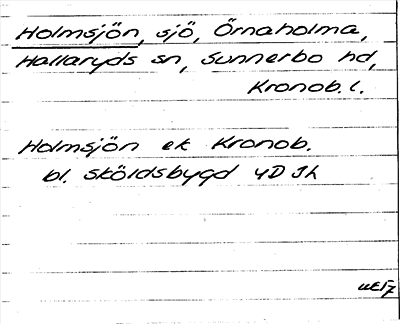 Holmsjön, sjö, Örnaholma,
Hallaryds sn, Sunnerbo hd,
Kronob. l.
Holmsjön ek Kronob.
bl. Sköldsbygd 4D Ih